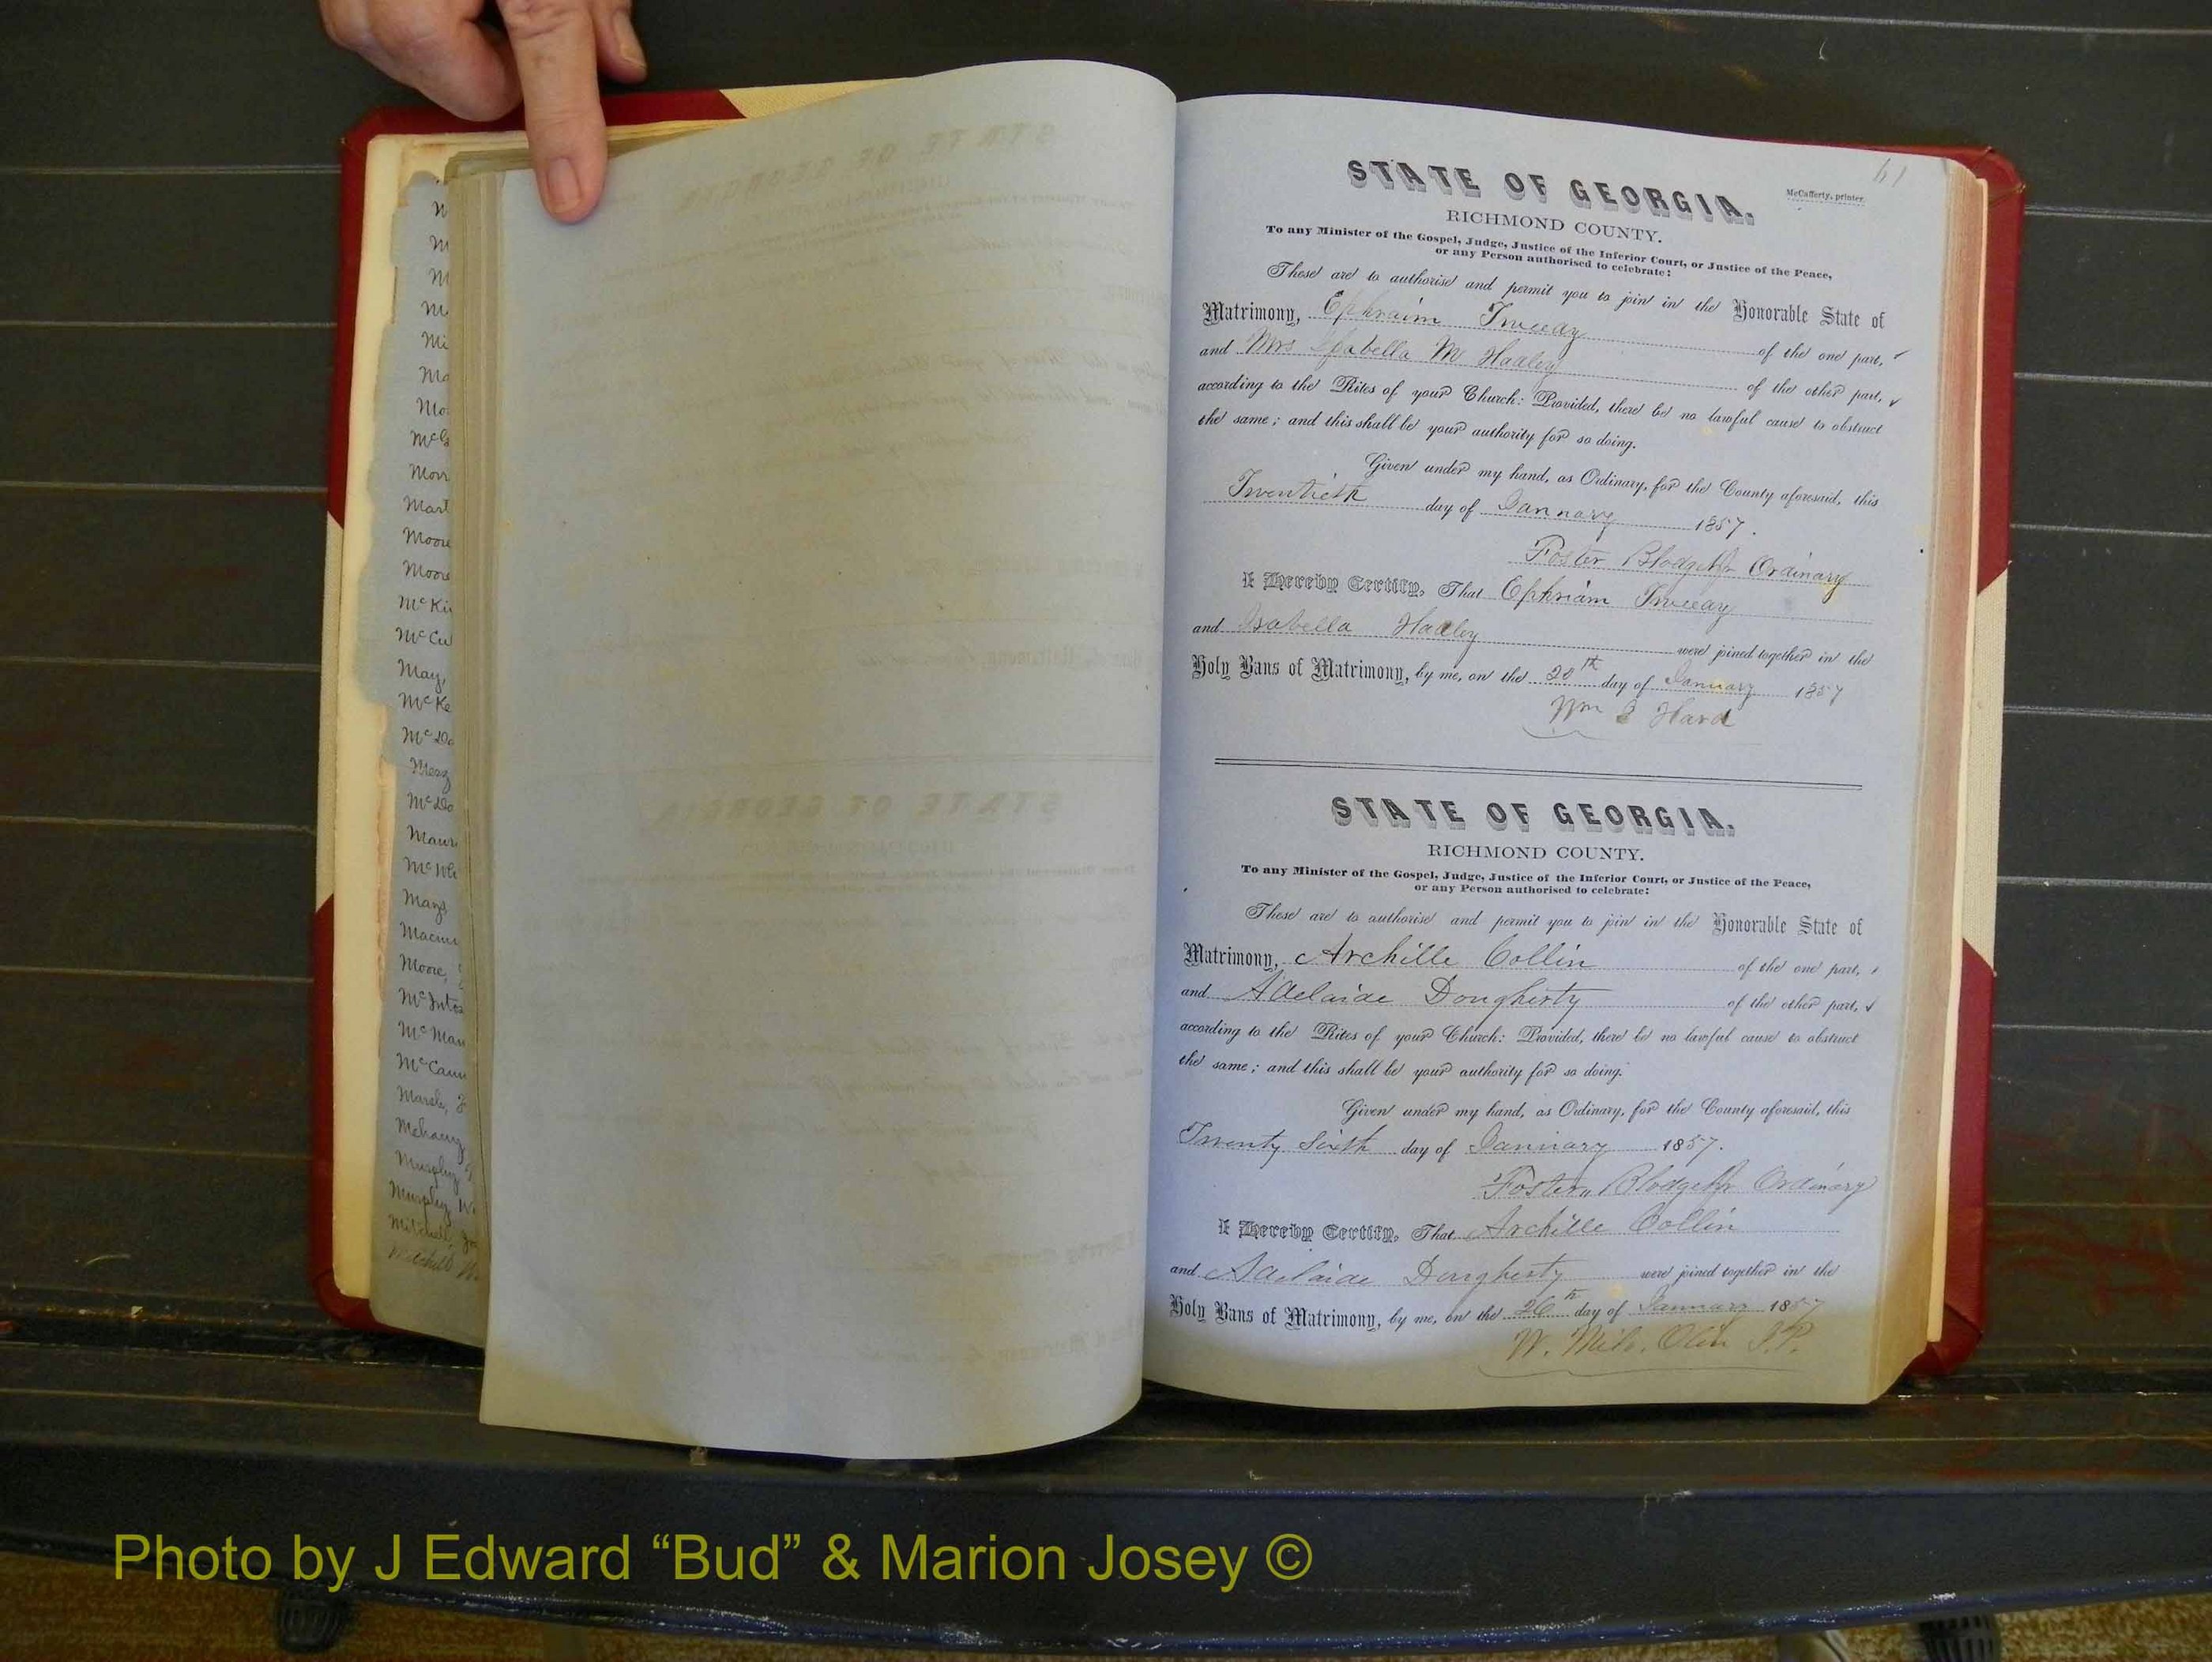 M
M
M
M
Mi
Ma
Mo
McG
Morr
Mart
Moore
Moore
McKi
McCu
May,
McKe
McDo
McDo
Maur
McWh
Mays
Moore,
McInto
McMan
McCann
Murphy
Murphy, W
Mitchell, Jo
Mitchell W
61
McCafferty, printer.
STATE OF GEORGIA.
RICHMOND COUNTY.
To any Minister of the Gospel, Judge, Justice of the Inferior Court, or Justice of the Peace,
or any Person authorised to celebrate:
These are to authorise and permit you to join in the Honorable State of
Matrimony, Ephraim Tweedy of the one part,
and Mrs Isabella M Hadley of the other part,
according to the Rites of your Church: Provided, there be no lawful cause to obstruct
the same; and this shall be your authority for so doing.
Given under my hand, as Ordinary, for the County aforesaid, this
Twentieth day of January 1857.
Foster Blodget Jr Ordinary
I Hereby Certify, That Ephriam Tweedy
and Isabella Hadley were joined together in the
Holy Bans of Matrimony, by me, on the 20th day of January 1857
Wm J Hard
STATE OF GEORGIA.
RICHMOND COUNTY.
To any Minister of the Gospel, Judge, Justice of the Inferior Court, or Justice of the Peace,
or any Person authorised to celebrate:
These are to authorise and permit you to join in the Honorable State of
Matrimony, Archille Collin of the one part,
and Adelaide Dougherty of the other part,
according to the Rites of your Church: Provided, there be no lawful cause to obstruct
the same; and this shall be your authority for so doing.
Given under my hand, as Ordinary, for the County aforesaid, this
Twenty Sixth day of January 1857.
Foster Blodget Jr Ordinary
I Hereby Certify, That Archille Collin
and Adelaide Dougherty were joined together in the
Holy Bans of Matrimony, by me, on the 26th day of January 1857
W. Milo. Olin J.P.
Photo by J Edward “Bud” & Marion Josey ©